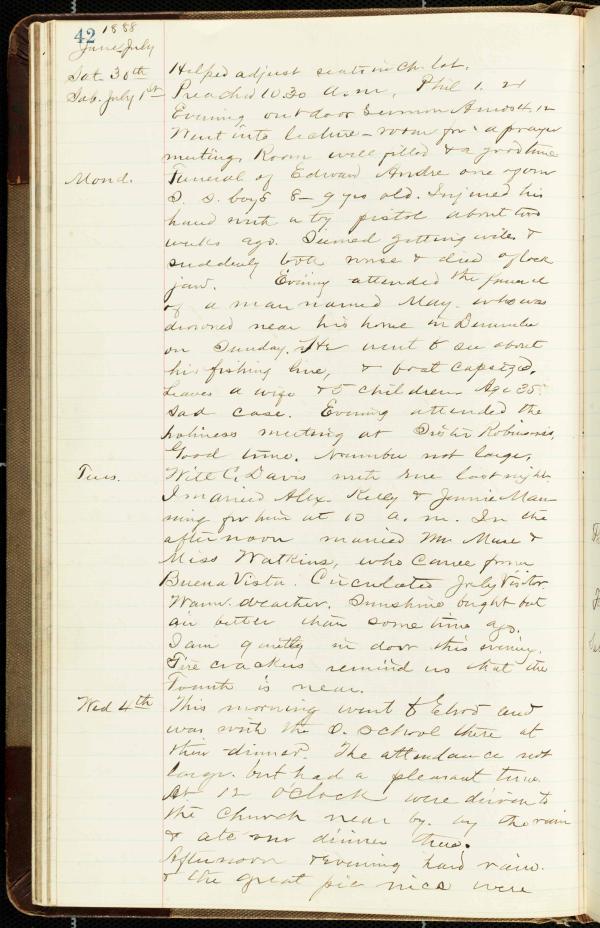 42 1888
June July
Sat. 30th Helped adjust seats in Ch. lot.
Sab. July 1st Preached 10.30 a.m. Phil 1. 21
Evening out door sermon Amos 4, 12
Went into lecture-room for a prayer
meeting. Room well filled & a good time
Mond. Funeral of Edward Andre one of our
S. S. boys 8-9 yrs old. Injured his
hand with a toy pistol about two
weeks ago. Seemed getting well &
suddenly took worse & died of lock
jaw. Evening attended the funeral
of a man named May. who was
drowned near his home in
on Sunday. He went to see about
his fishing line, & boat capsized.
Leaves a wife & 5 children. Age 35.
Sad case. Evening attended the
holiness meeting at Sister Robinsons.
Good time. Number not large.
Tues. Will C. Davis with me last night.
I married Alex. Kelly & Jennie Man-
ning for him at 10 a.m. In the
afternoon married Mr. Muse &
Miss Watkins, who came from
Buena Vista. Circulated July Visitor
Warm weather. Sunshine bright but
air better than some time ago.
I am quietly in door this evening.
Fire crackers remind us that the
Fourth is near.
Wed 4th This morning went to and
was with the S. School there at
their dinner. The attendance not
large. but had a pleasant time.
At 12 O'Clock were driven to
the church near by. by the rain
& ate our dinner there.
Afternoon & evening hard rain.
& the great pic nics were